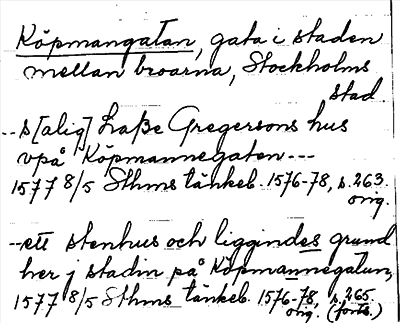 Köpmangatan, gata i staden
mellan broarna, Stockholms
stad.
--s[alig] Laße Gregersons hus
vpå Köpmannegaten ---
1577 8/5 Sthms tänkeb. 1576-78, s. 263.
orig.
--ett stenhus och liggindes grund
her j stadin på Köpmannegatun,
1577 8/5 Sthms tänkeb. 1576-78, s. 265.
orig. (forts.)